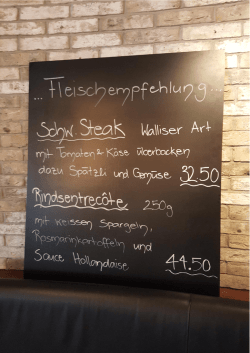 ... Fleischempfehlung ...
Schw. Steak Walliser Art
mit Tomaten & Käse überbacken
dazu Spätzli und Gemüse 32.50
Rindsentrecôte 250g
mit weissen Spargeln,
Rosmarinkartoffeln und
Sauce Hollandaise 44.50